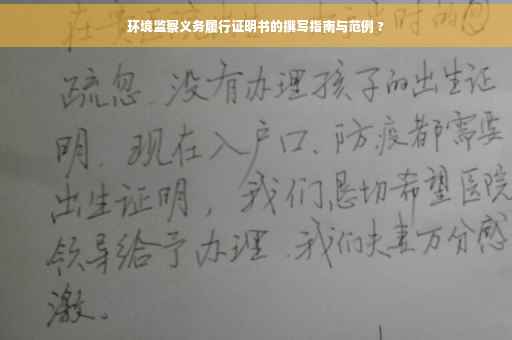 环境监察义务履行证明书的撰写指南与范例?
疏忽、没有办理孩子的出生证
明、现在入户口、防疫都需要
出生证明，我们恳切希望医院
领导给予办理、我们夫妻万分感
激。